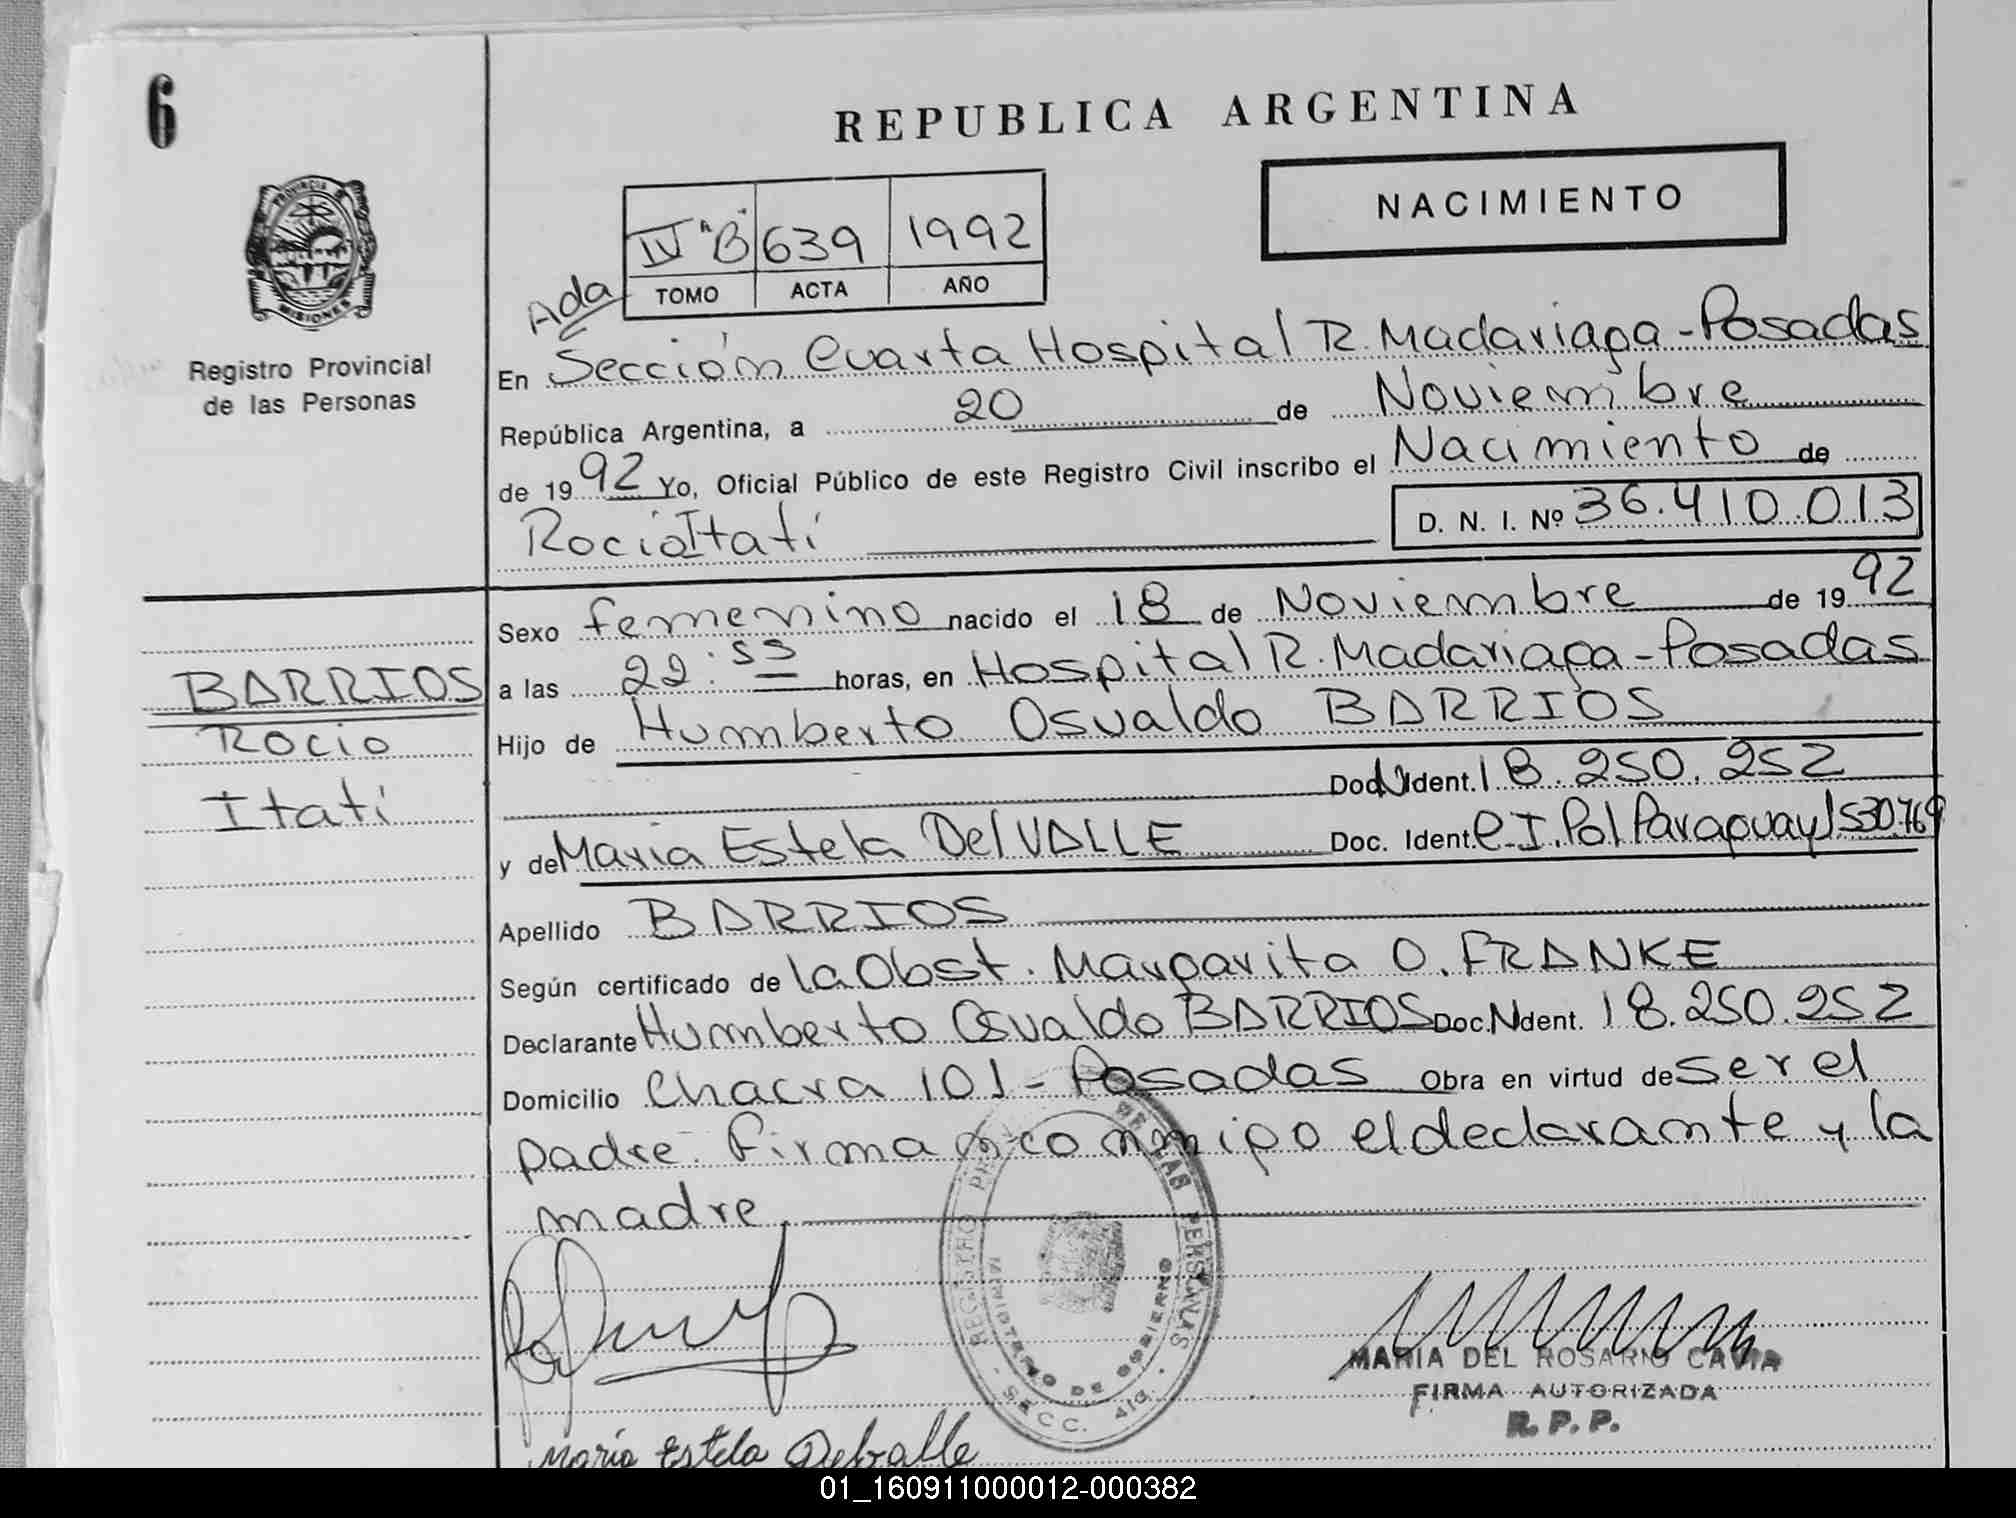 6
REPUBLICA ARGENTINA
NACIMIENTO
IV "B" 639 1992
TOMO ACTA AÑO
PROVINCIA DE
MISIONES
Registro Provincial
de las Personas
Ada
En Sección Cuarta Hospital R. Madariaga - Posadas
República Argentina, a 20 de Noviembre
de 1992 Yo, Oficial Público de este Registro Civil inscribo el Nacimiento de
Rocío Itatí D. N. I. Nº 36.410.013
Sexo femenino nacido el 18 de Noviembre de 1992
BARRIOS
Rocio
Itatí
a las 22:55 horas, en Hospital R. Madariaga - Posadas
Hijo de Humberto Osvaldo BARRIOS
Doc. Ident. 18.250.252
y de Maria Estela Del VALLE Doc. Ident. C.I. Pol Paraguay 1530.769
Apellido BARRIOS
Según certificado de la Obst. Margarita O. FRANKE
Declarante Humberto Osvaldo BARRIOS Doc. Ident. 18.250.252
Domicilio Chacra 101 - Posadas Obra en virtud de ser el
padre. Firman conmigo el declarante y la
madre
REGISTRO PROVINCIAL DE LAS PERSONAS
MINISTERIO DE GOBIERNO
SECC. 4ta.
MARIA DEL ROSARIO CAVIA
FIRMA AUTORIZADA
R. P. P.
María Estela Delvalle
01_160911000012-000382